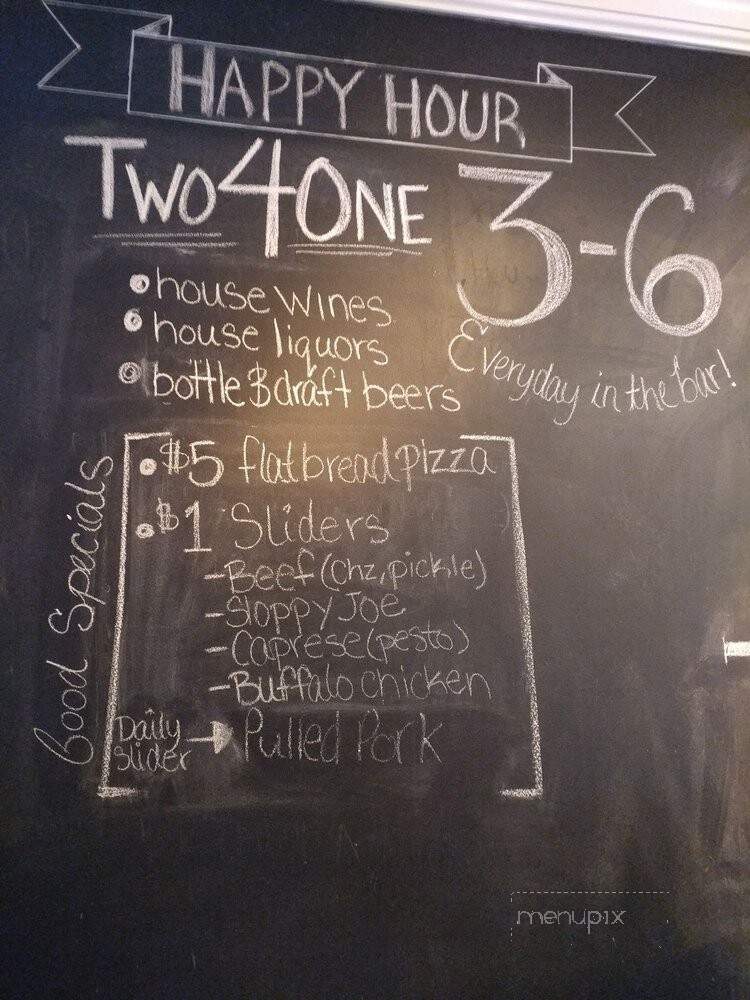 HAPPY HOUR
TWO 4 ONE
3-6
Everyday in the bar!
• house wines
• house liquors
• bottle & draft beers
Food Specials
• $5 flatbread pizza
• $1 Sliders
- Beef (Chz, pickle)
- Sloppy Joe
- Caprese (pesto)
- Buffalo chicken
Daily slider → Pulled Pork
menupix